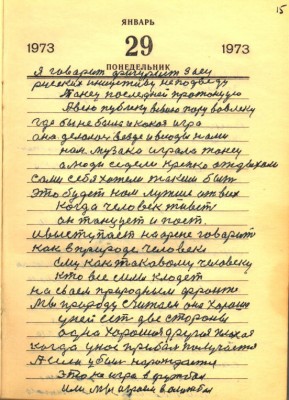 15
ЯНВАРЬ
1973 29 1973
ПОНЕДЕЛЬНИК
Я говарит фигурист Заец
рускких никагда не подведу
Танец последней протонцую
А всю публику
где бы не была и какая игра
она делалась везде и всюды нами
нам музыка играла танец
а люди сидели крепко отдыхали
сами себя хотели такими быть
Это будет нам лучше от всех
Когда человек живет
он танцует и поет
И выступает на арене говарит
как в природе человек
ему как таковому человеку
кто все силы кладет
на своем природным фронте
Мы природу считаем она хорошая
у ней ест две стороны
одна хорошая другая плохая
когда у нас прибыл получается
А сын убыл нарождается
Это не игра в футбол
или мы играем в